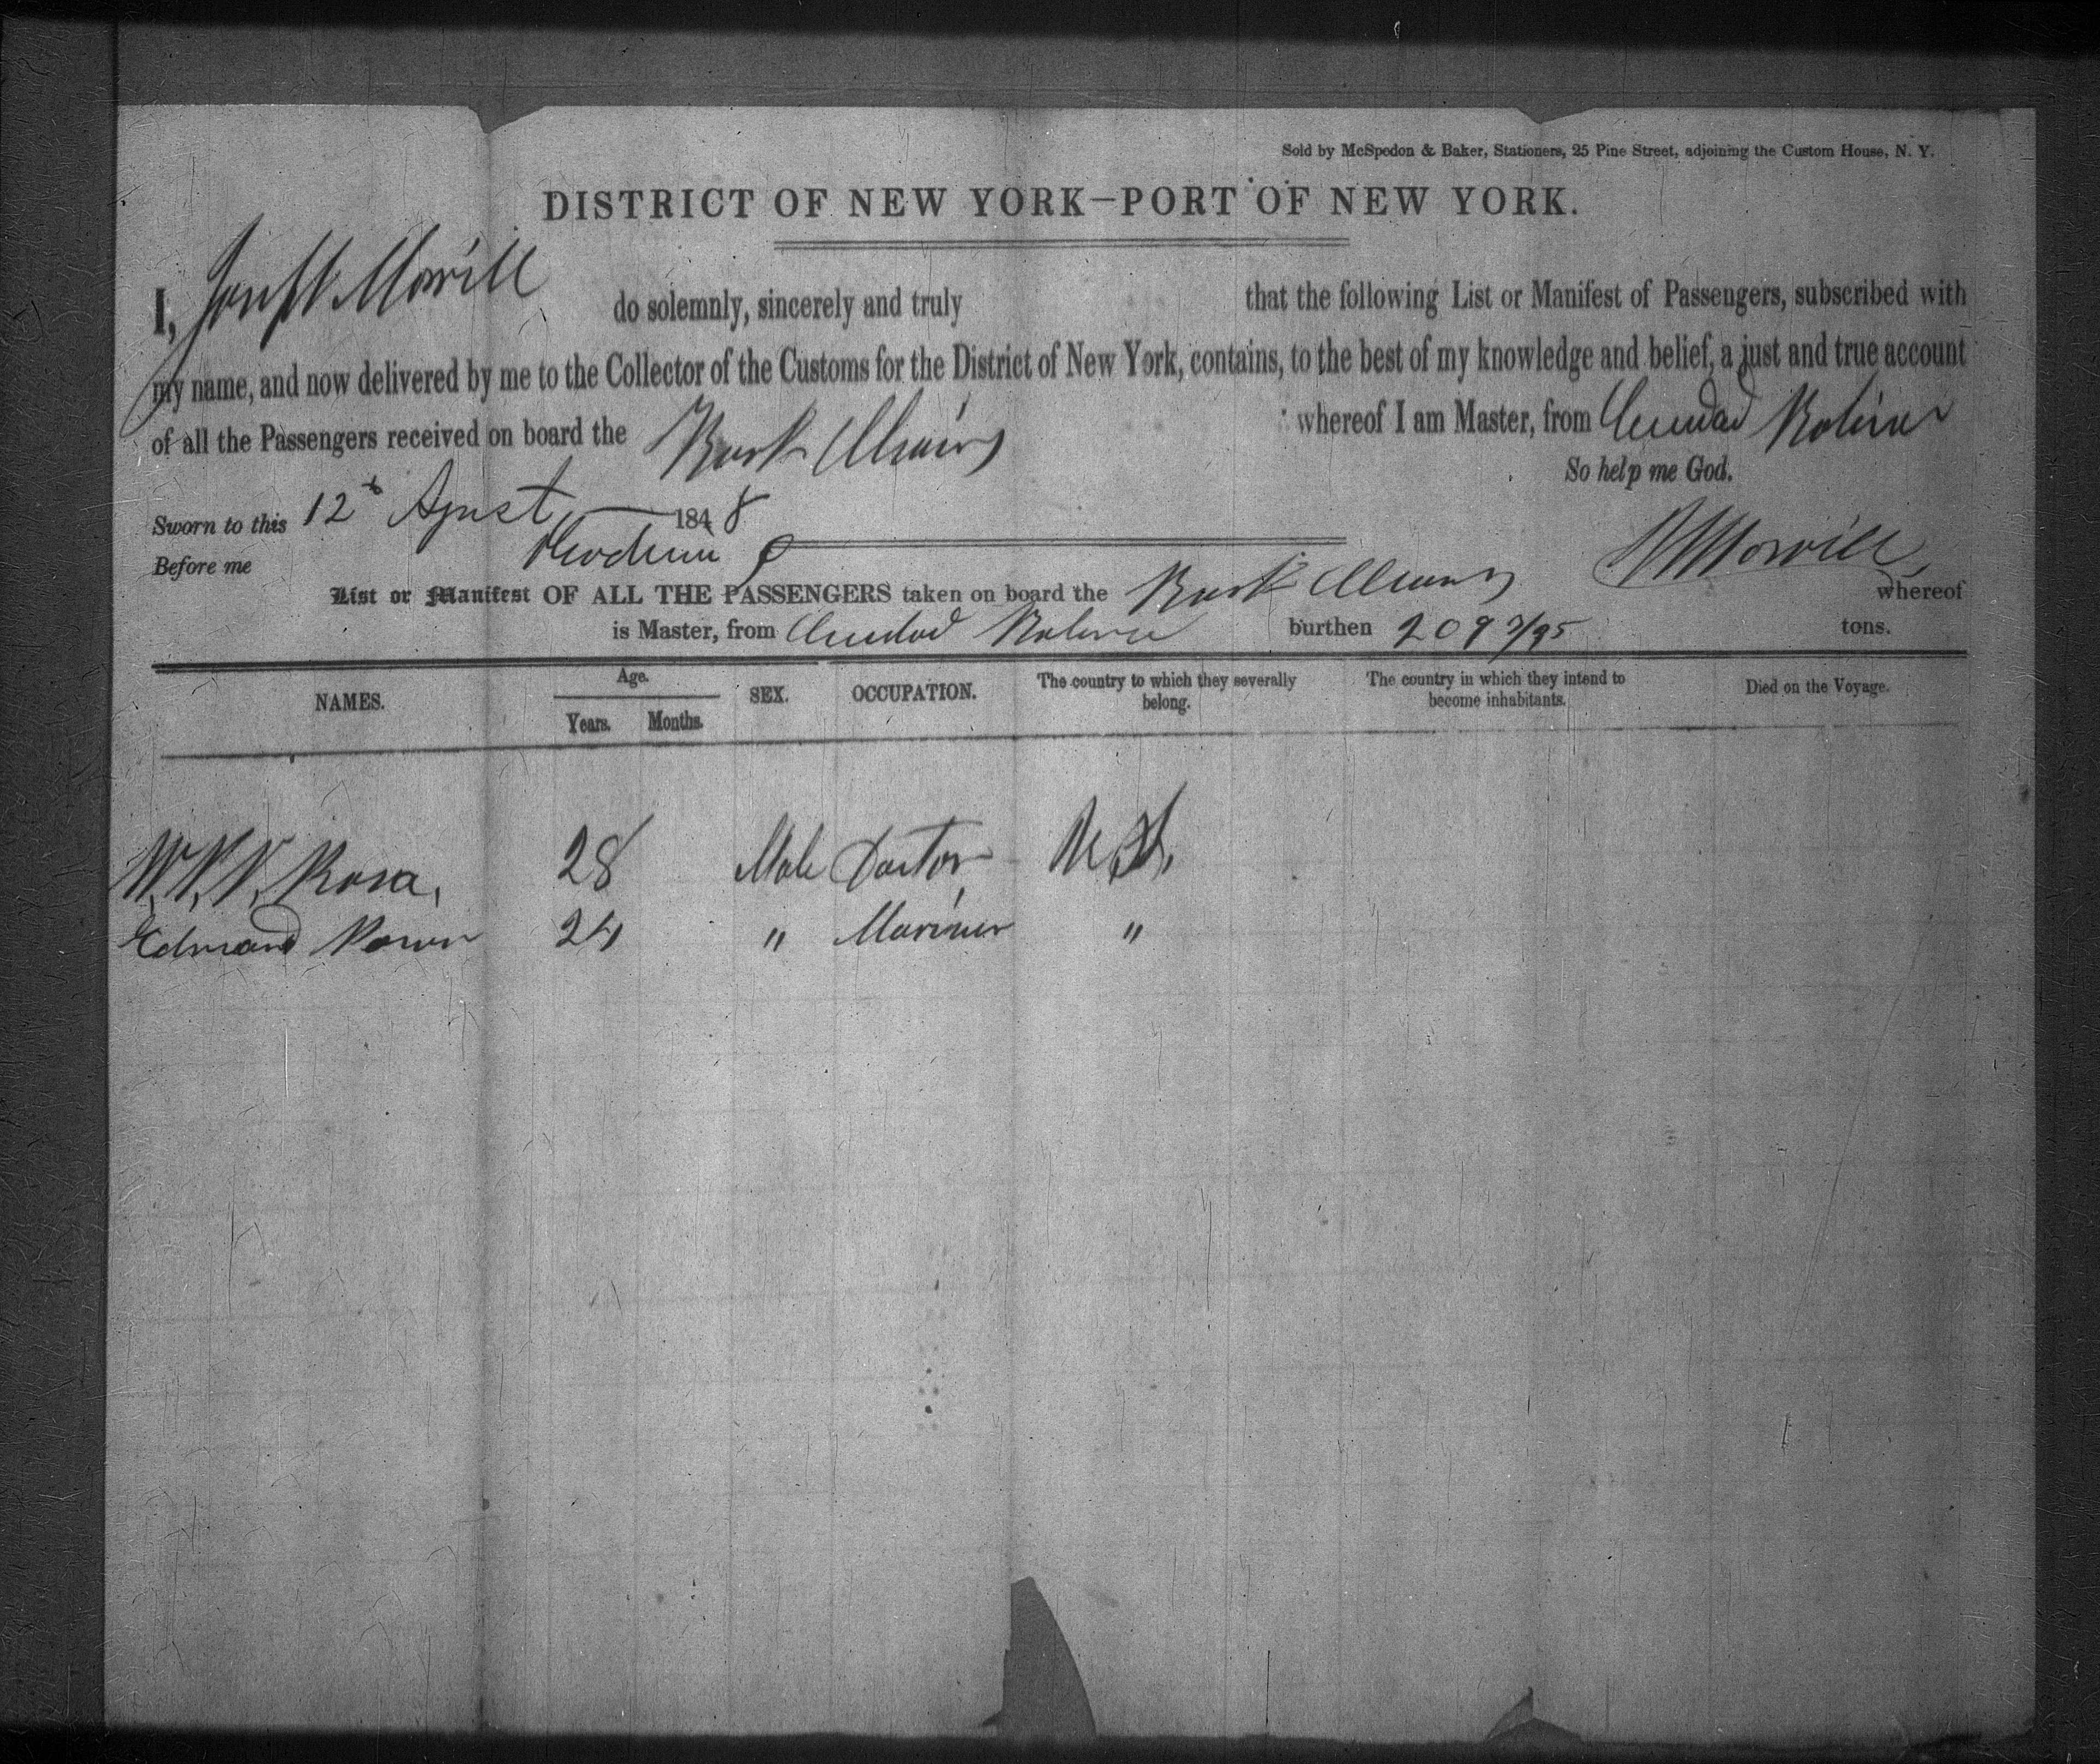 Sold by McSpedon & Baker, Stationers, 25 Pine Street, adjoining the Custom House, N. Y.
DISTRICT OF NEW YORK—PORT OF NEW YORK.
I, Morrill do solemnly, sincerely and truly that the following List or Manifest of Passengers, subscribed with
my name, and now delivered by me to the Collector of the Customs for the District of New York, contains, to the best of my knowledge and belief, a just and true account
of all the Passengers received on board the Bark whereof I am Master, from Ciudad Bolivar
So help me God.
Sworn to this 12th Agust 1848
Before me Morrill
List or Manifest OF ALL THE PASSENGERS taken on board the Bark whereof
is Master, from Ciudad Bolivar burthen 209 tons.
NAMES. Age. Years. Months. SEX. OCCUPATION. The country to which they severally belong. The country in which they intend to become inhabitants. Died on the Voyage.
Rosa, 28 Male Doctor U.S.
Edmand 24 " Mariner "